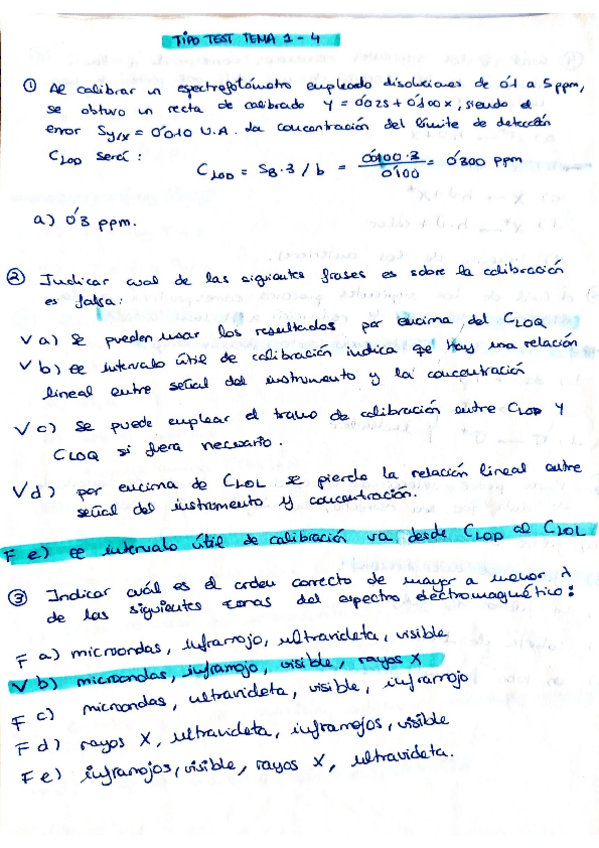 TIPO TEST TEMA 1 - 4
① Al calibrar un espectrofotómetro empleado disoluciones de 0'1 a 5 ppm,
se obtuvo un recta de calibrado y = 0'025 + 0'100x, siendo el
error Sy/x = 0'010 U.A. La concentración del límite de detección
CLOD será:
CLOD = SB·3 / b = 0'0100·3 / 0'100 = 0'300 ppm
a) 0'3 ppm.
② Indicar cual de las siguientes frases es sobre la calibración
es falsa:
V a) se pueden usar los resultados por encima del CLOQ
V b) el intervalo útil de calibración indica qe hay una relación
lineal entre señal del instrumento y la concentración
V c) Se puede emplear el tramo de calibración entre CLOD y
CLOQ si fuera necesario.
V d) por encima de CLOL se pierde la relación lineal entre
señal del instrumento y concentración.
F e) el intervalo útil de calibración va desde CLOD al CLOL
③ Indicar cuál es el orden correcto de mayor a menor λ
de las siguientes zonas del espectro electromagnético:
F a) microondas, infrarrojo, ultravioleta, visible
V b) microondas, infrarrojo, visible, rayos X
F c) microondas, ultravioleta, visible, infrarrojo
F d) rayos X, ultravioleta, infrarrojos, visible
F e) infrarrojos, visible, rayos X, ultravioleta.